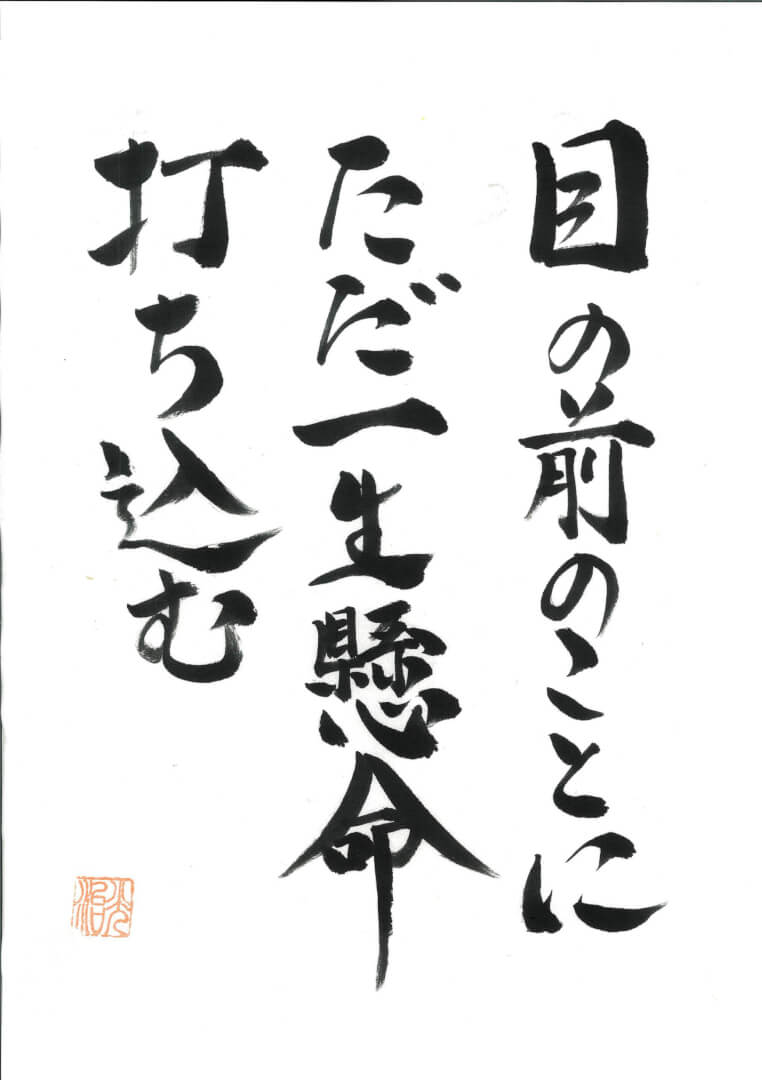 目の前のことに
ただ一生懸命
打ち込む